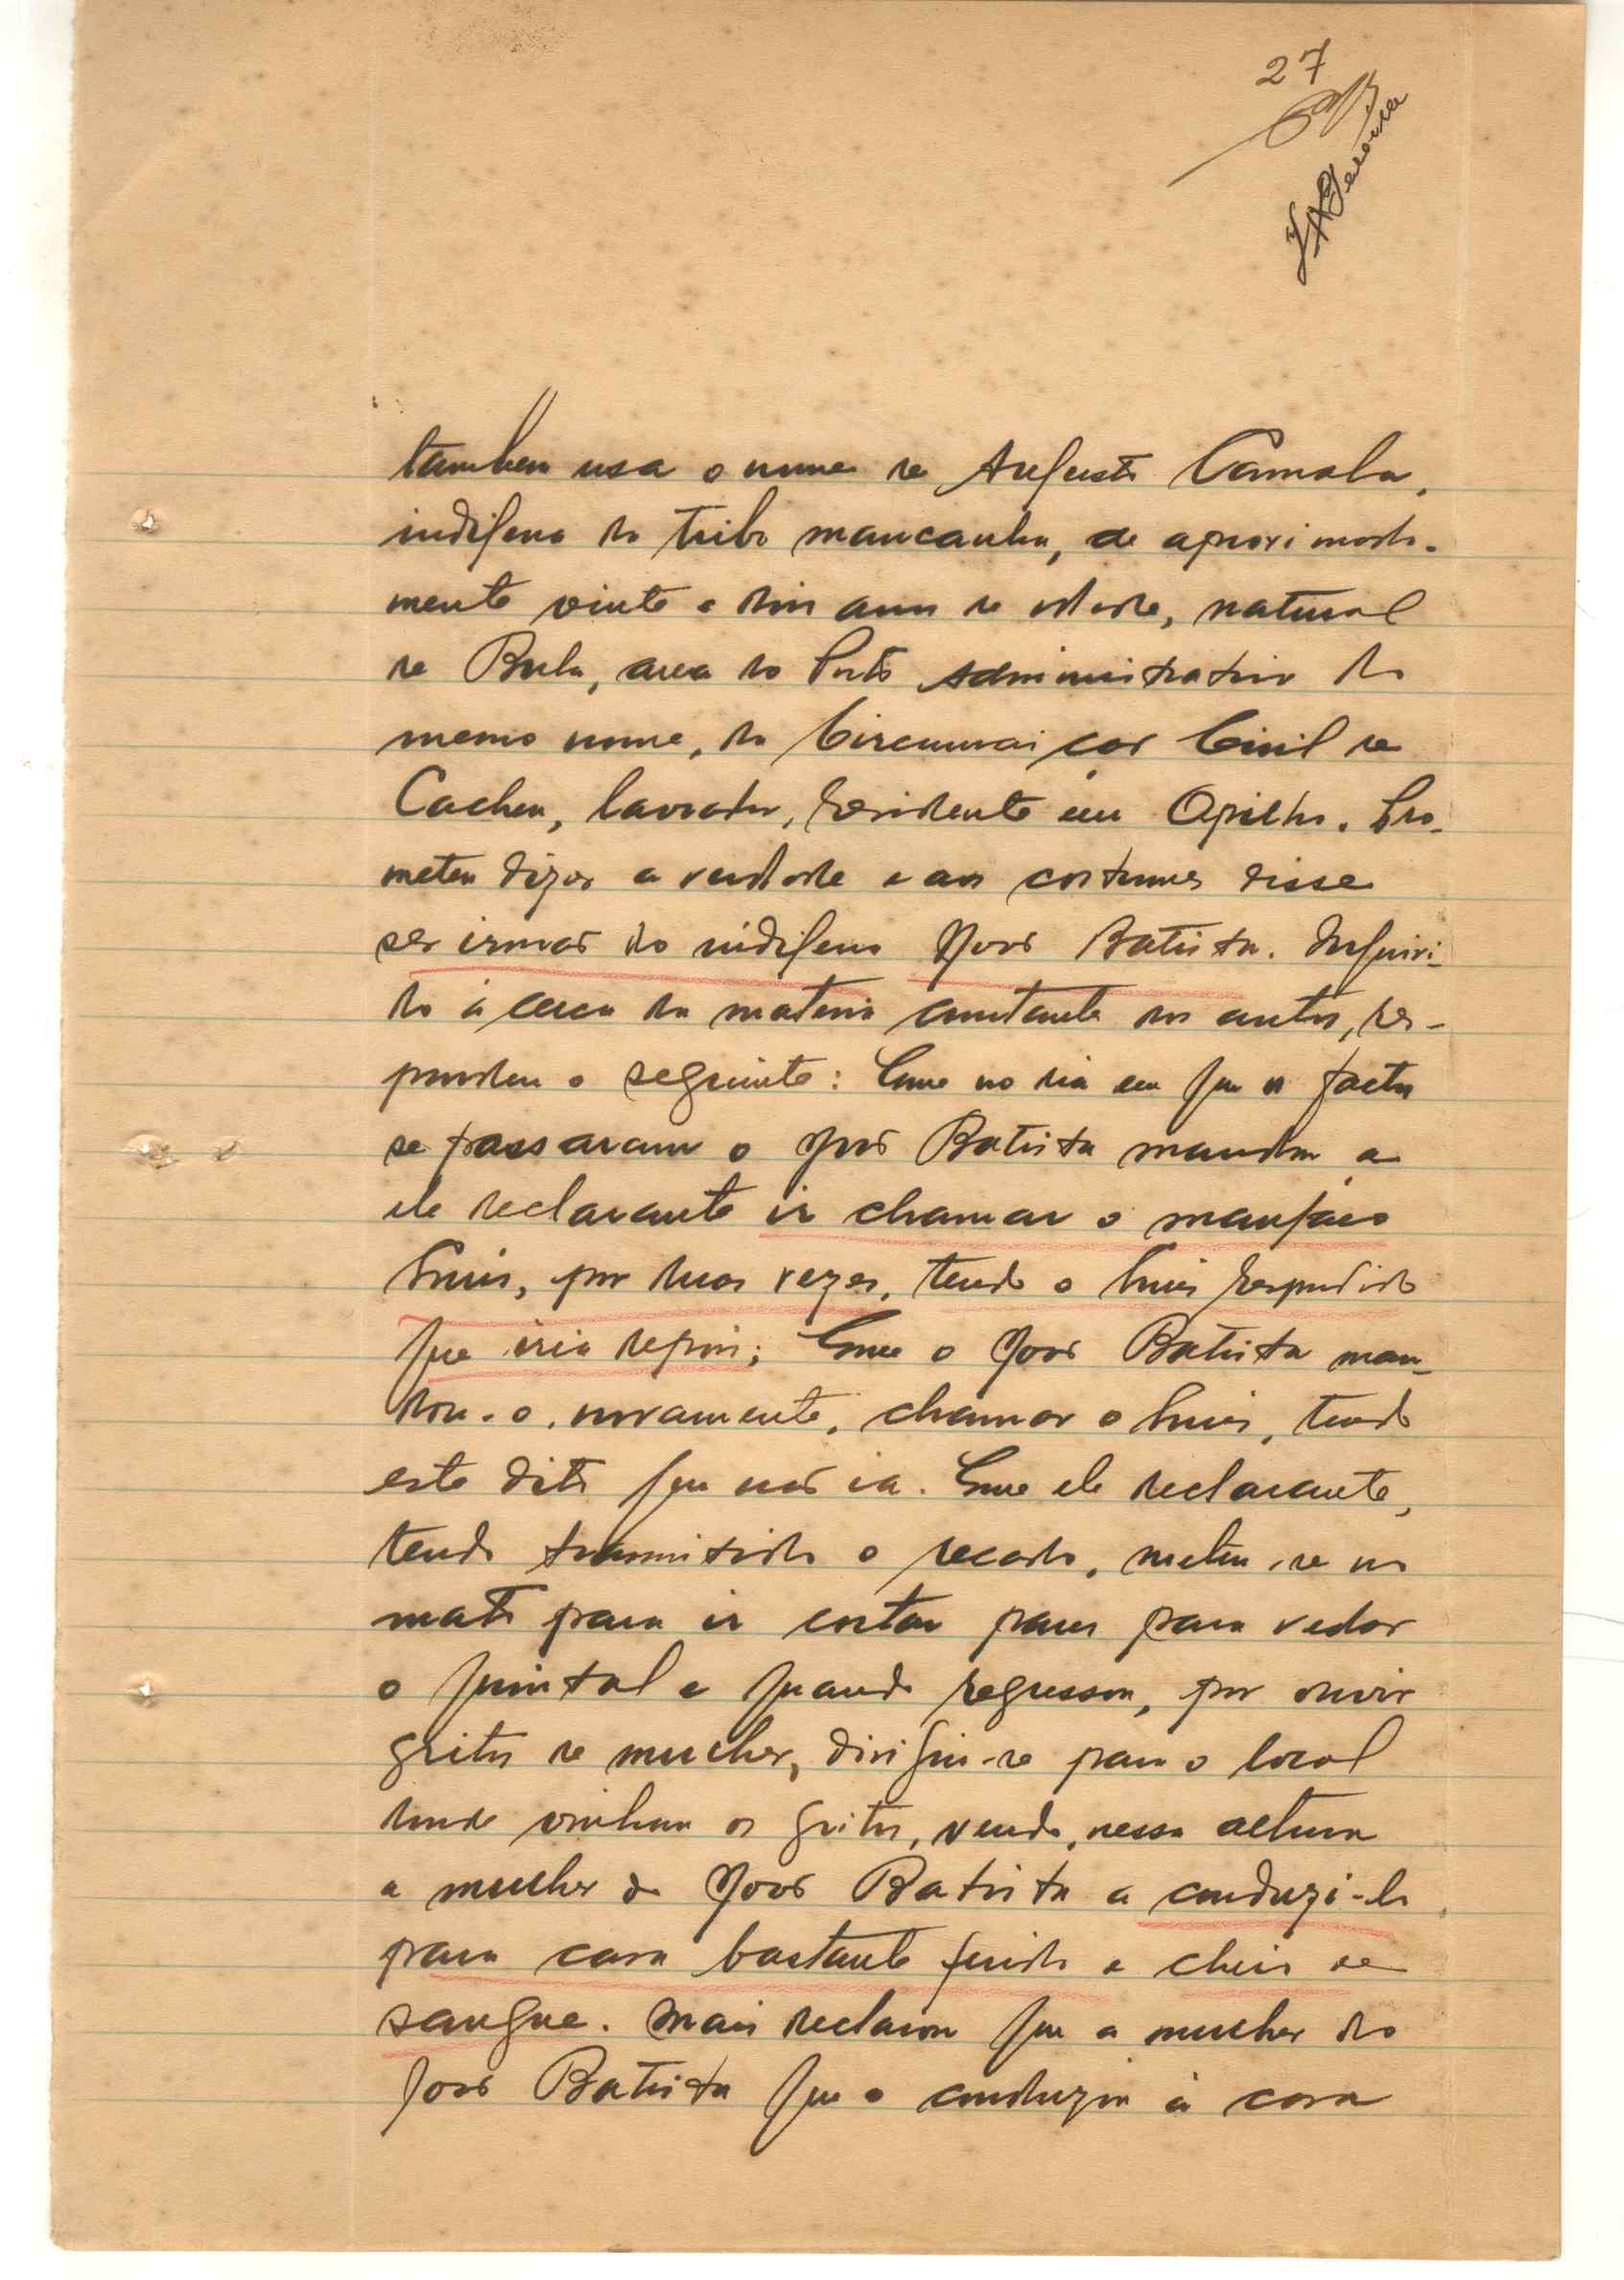 27
tambem usa o nome de Augusto Camala,
indigena da tribo mancanha, de aproximada-
mente vinte e dois anos de idade, natural
de Bula, area do Posto Administrativo do
mesmo nome, da Circunscrição Civil de
Cacheu, lavrador, residente em Opilho. Pro-
meteu dizer a verdade e aos costumes disse
ser irmão do indigena João Batista. Inquiri-
do á cerca da materia constante dos autos, res-
pondeu o seguinte: Que no dia em que os factos
se passaram o João Batista mandou a
ele declarante ir chamar o manjaco
Luis, por duas vezes, tendo o Luis respondido
que iria depois; Que o João Batista man-
dou-o, novamente, chamar o Luis, tendo
este dito que não ia. Que ele declarante,
tendo transmitido o recado, meteu-se no
mato para ir cortar paus para vedar
o quintal e quando regressou, por ouvir
gritos de mulher, dirigiu-se para o local
donde vinham os gritos, vendo, nessa altura
a mulher do João Batista a conduzi-lo
para casa bastante ferido e cheio de
sangue. Mais declarou que a mulher do
João Batista que o conduziu á casa